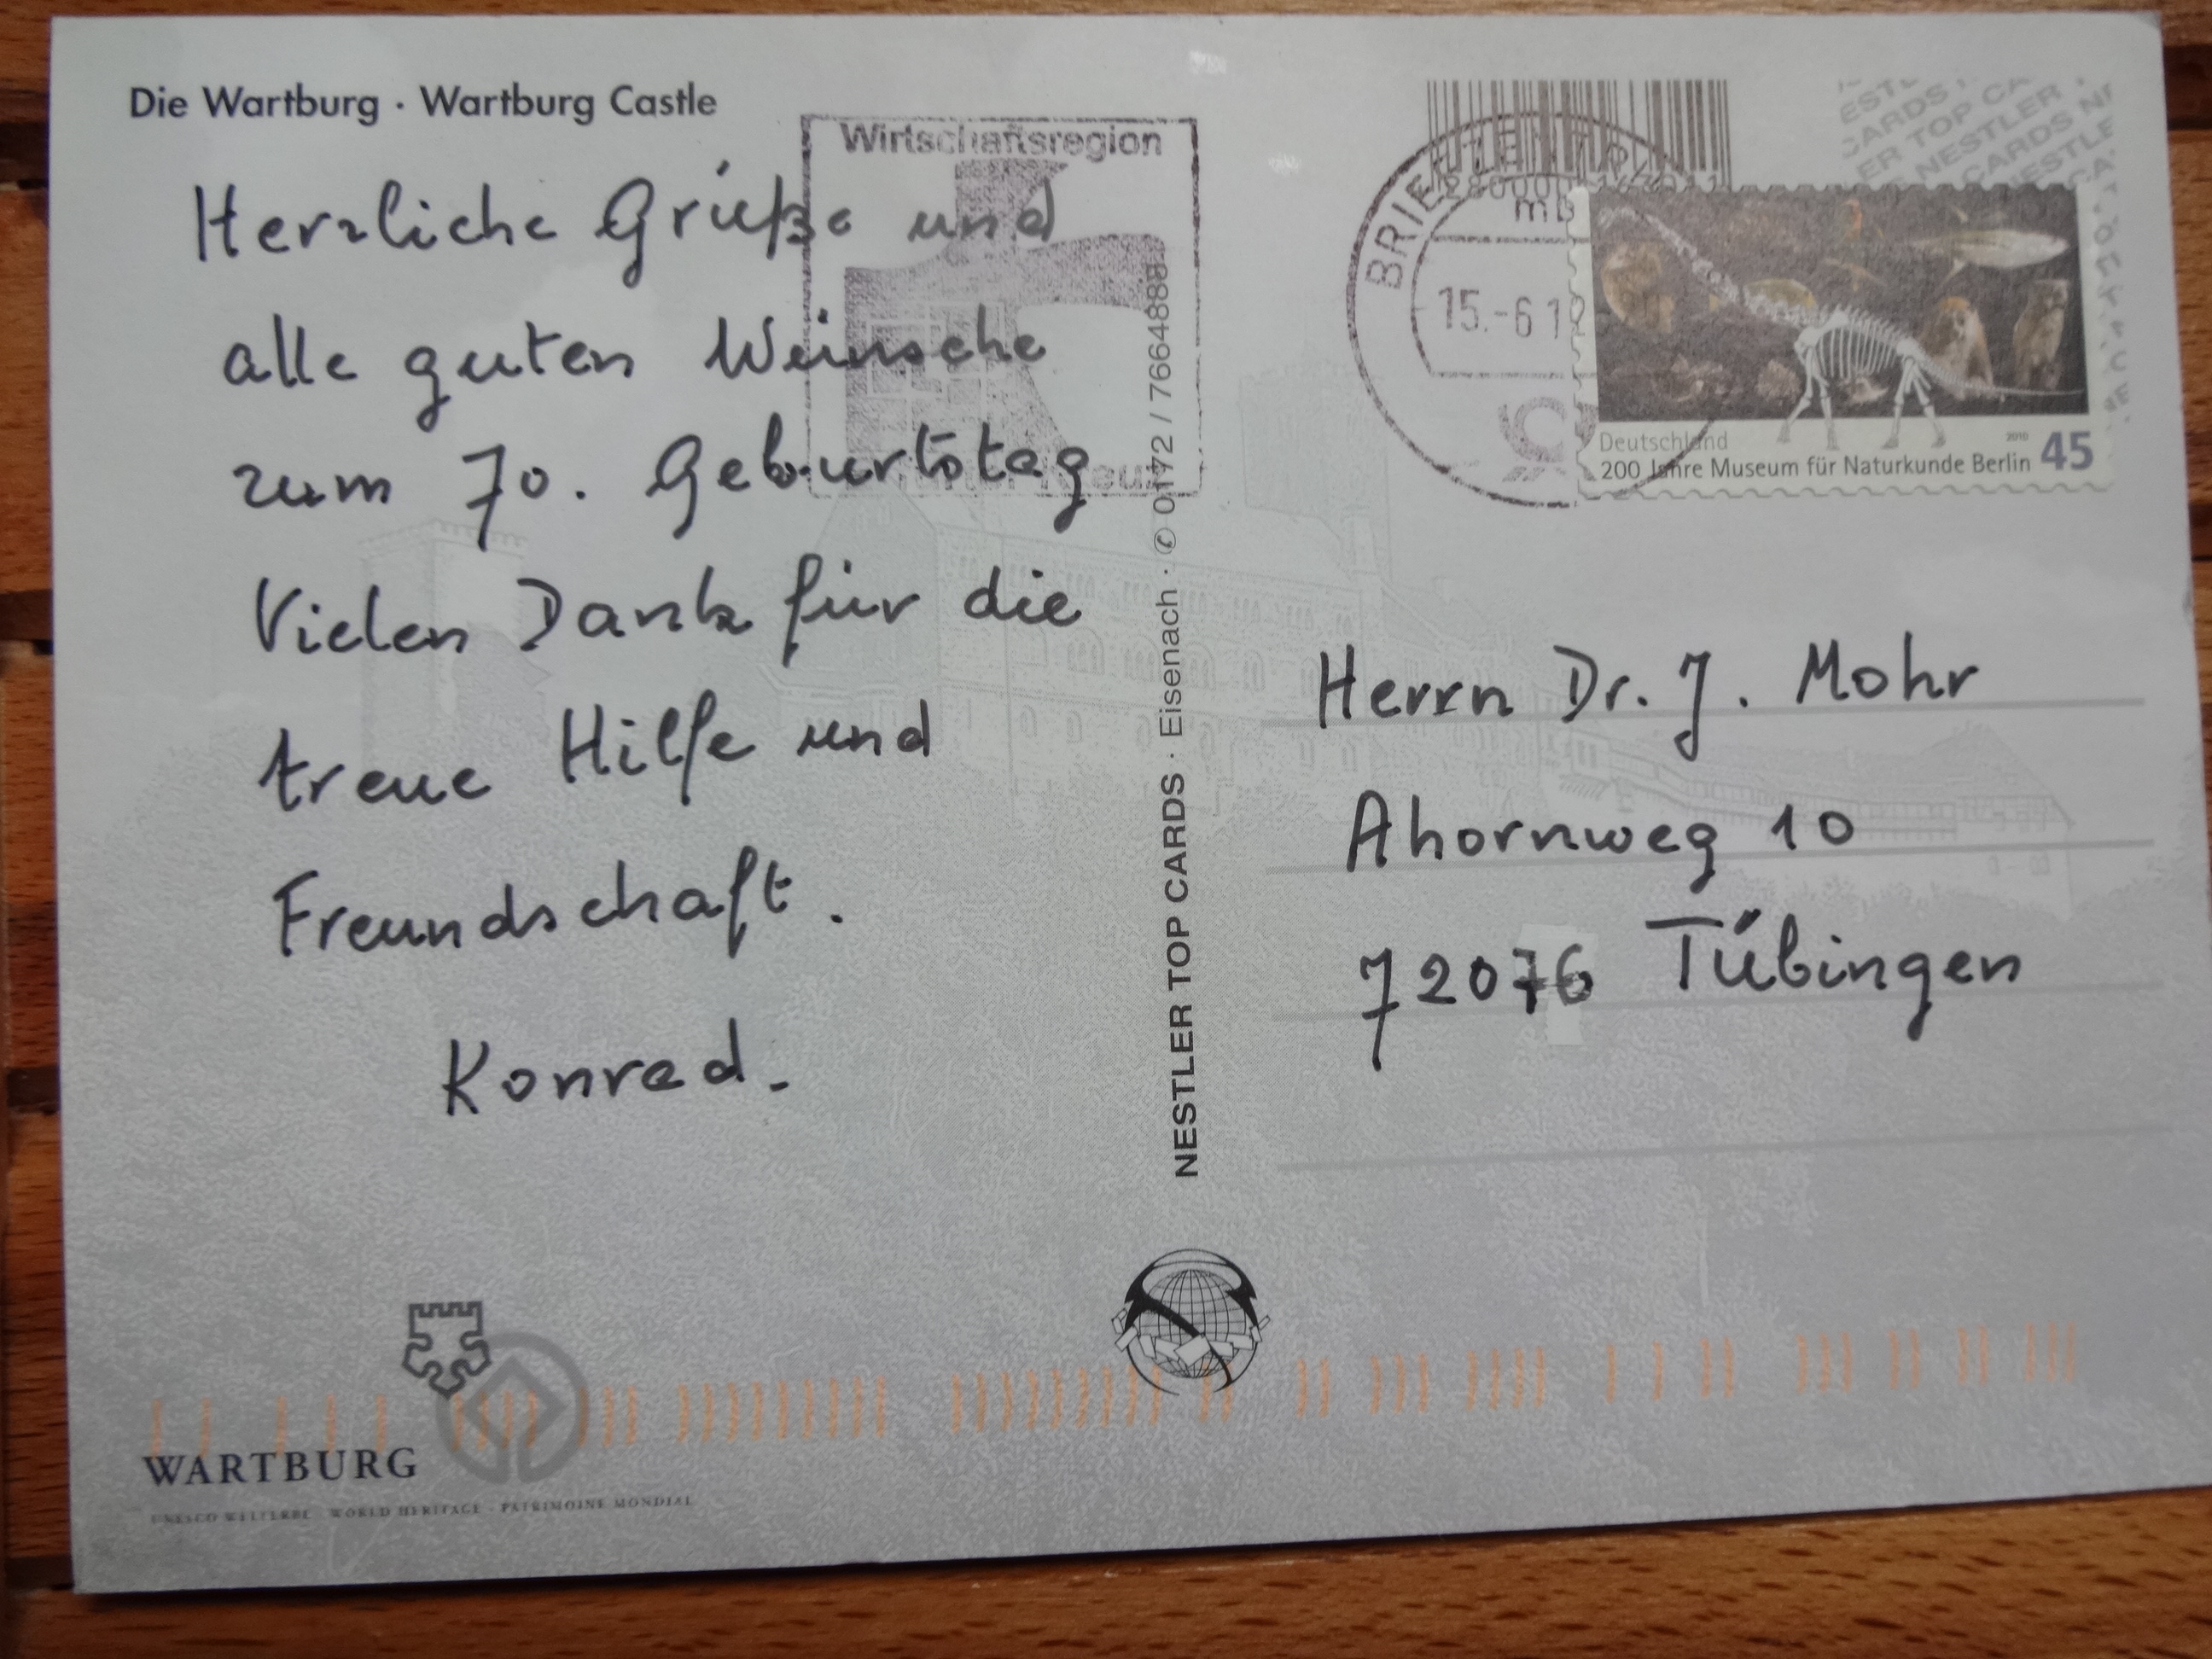 Die Wartburg · Wartburg Castle
Herzliche Grüße und
alle guten Wünsche
zum 70. Geburtstag
Vielen Dank für die
treue Hilfe und
Freundschaft.
Konrad.
Wirtschaftsregion
NESTLER TOP CARDS · Eisenach · ✆ 0172 / 7664888
15.-6 1
Deutschland
2010
45
200 Jahre Museum für Naturkunde Berlin
Herrn Dr. J. Mohr
Ahornweg 10
72076 Tübingen
WARTBURG
UNESCO WELTERBE · WORLD HERITAGE · PATRIMOINE MONDIAL